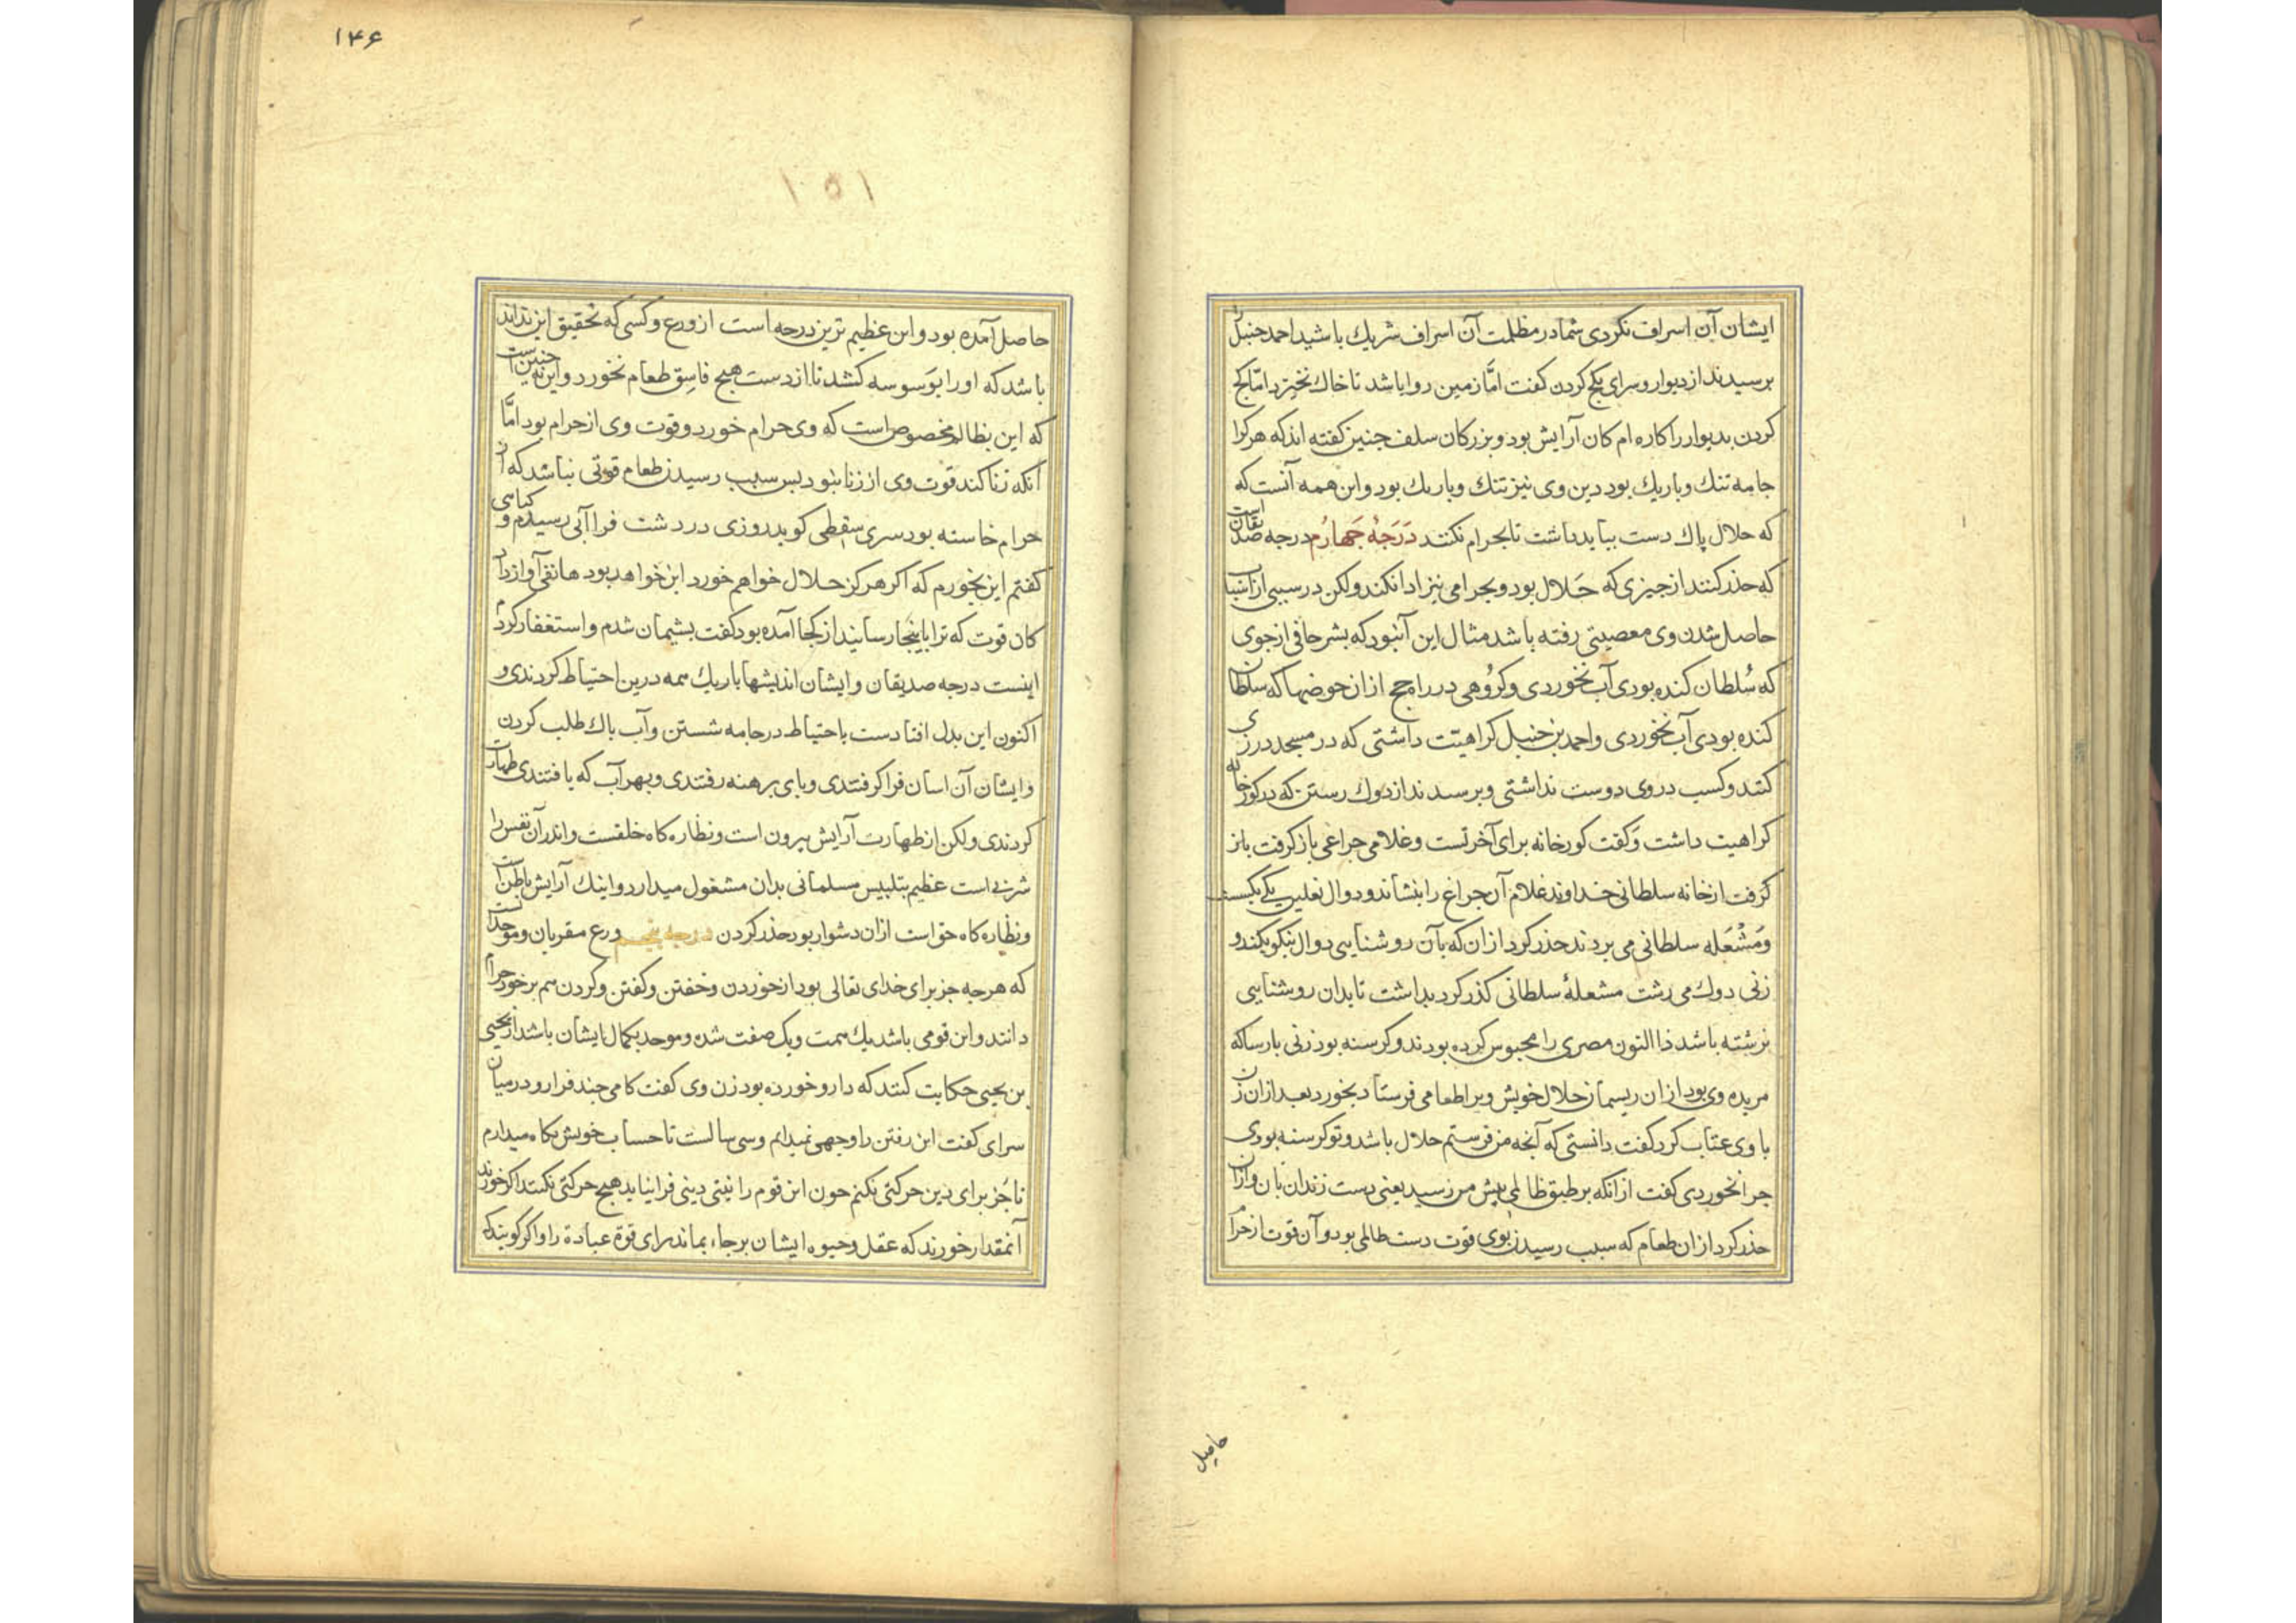 ایشان آن اسراف نکردی شما در مظلمت آن اسراف شریك باشید احمد حنبل را
برسیدند از دیوار و سرای بکج کردن کفت امّا زمین روا باشد تا خاك نخیزد امّا کج
کردن بدیوار را کاره ام کان آرایش بود و بزرکان سلف جنین کفته اند که هر کرا
جامه تنك و باریك بود دین وی نیز تنك و باریك بود و این همه آنست که
که حلال پاك دست بباید داشت تا بحرام نکشد دَرَجَهٔ جَهارُم درجه صدیقان است
که حذر کنند از جیزی که حَلال بود و بحرامی نیز ادا نکند ولکن در سببی از اسباب
حاصل شدن وی معصیتی رفته باشد مثال این آنبود که بشر حافی از جوی
که سُلطان کنده بودی آب نخوردی و کرُوهی در راه حج ازان حوضها که سلطان
کنده بودی آب نخوردی و احمد بن حنبل کراهیتت داشتی که در مسجد درزی
کنند و کسب در وی دوست نداشتی و برسیدند از دوك رستن که در کورخانه
کراهیت داشت وَ کفت کورخانه برای آخرتست و غلامی جراغی باز کرفت باز
کرفت از خانه سلطانی خداوند غلام آن جراغ را بنشاند و دوال نعلین یکی بکسست
وَ مَشْعَله سلطانی می بردند حذر کرد ازان که بآن روشنایی دوال نیکو بکند و
زنی دوك می رشت مشعلهٔ سلطانی کذر کرد بداشت تا بدان روشنایی
نرشته باشد ذا النون مصری را محبوس کرده بودند و کرسنه بود زنی بارسا که
مریده وی بود از ان ریسمان حلال خویش ویرا طعامی فرستاد بخورد بعد از ان زن
با وی عتاب کرد کفت دانستی که آنجه من فرستم حلال باشد و تو کرسنه بودی
جرا نخوردی کفت ازانکه بر طبق ظالمی بیش من رسید یعنی دست زندان بان و ازان
حذر کرد از ان طعام که سبب رسیدن بوی قوت دست ظالمی بود و آن قوت از حرام
حاصل
۱۴۶
۱۵۱
حاصل آمده بود و این عظیم ترین درجه است از ورع و کسی که تحقیق این نداند
باشد که اورا بوَسوسه کشد تا از دست هیج فاسِق طعام نخورد و این نه جنین است
که این بظالم مخصوص است که وی حرام خورد و قوت وی از حرام بود امّا
آنکه زنا کند قوت وی از زنا نبود بس سبب رسیدن طعام قوتی نباشد که از
حرام خاسته بود سری سقطی کوید روزی در دشت فرا آبی رسیدم و کیاهی
کفتم این بخورم که اکر هرکز حلال خواهم خورد این خواهد بود هاتفی آواز داد
کان قوت که ترا باینجا رسانید از کجا آمده بود کفت بشیمان شدم و استغفار کردم
اینست درجه صدیقان و ایشان اندیشها باریك همه درین احتیاط کردندی و
اکنون این بدل افتادست باحتیاط در جامه شستن و آب باك طلب کردن
و ایشان آن اسان فرا کرفتندی و بای برهنه رفتندی و بهر آب که یافتندی طهارت
کردندی ولکن از طهارت آرایش بیرون است و نظاره کاه خلقست و اندر آن نفس را
شربی است عظیم بتلبیس مسلمانی بدان مشغول میدارد و اینك آرایش باطن است
و نظاره کاه حق است ازان دشوار بود حذر کردن درجه بنجم ورع مقربان و موحدانست
که هرجه جز برای خدای تعالی بود از خوردن و خفتن و کفتن و کردن همه بر خود حرام
دانند و این قومی باشد یك همت و یك صفت شده و موحد بکمال ایشان باشد از یحیی
بن یحیی حکایت کنند که دارو خورده بود زن وی کفت کامی جند فرا رو در میان
سرای کفت این رفتن را وجهی نمیدانم و سی سالست تا حساب خویش نکاه میدارم
تا جُز برای دین حرکتی نکنم جون این قوم را نیتی دینی فرا نیاید هیج حرکتی نکنند اکر خورند
آنمقدار خورند که عقل و حیوه ایشان برجاء بماند برای قوة عبادة را و اکر کویند که